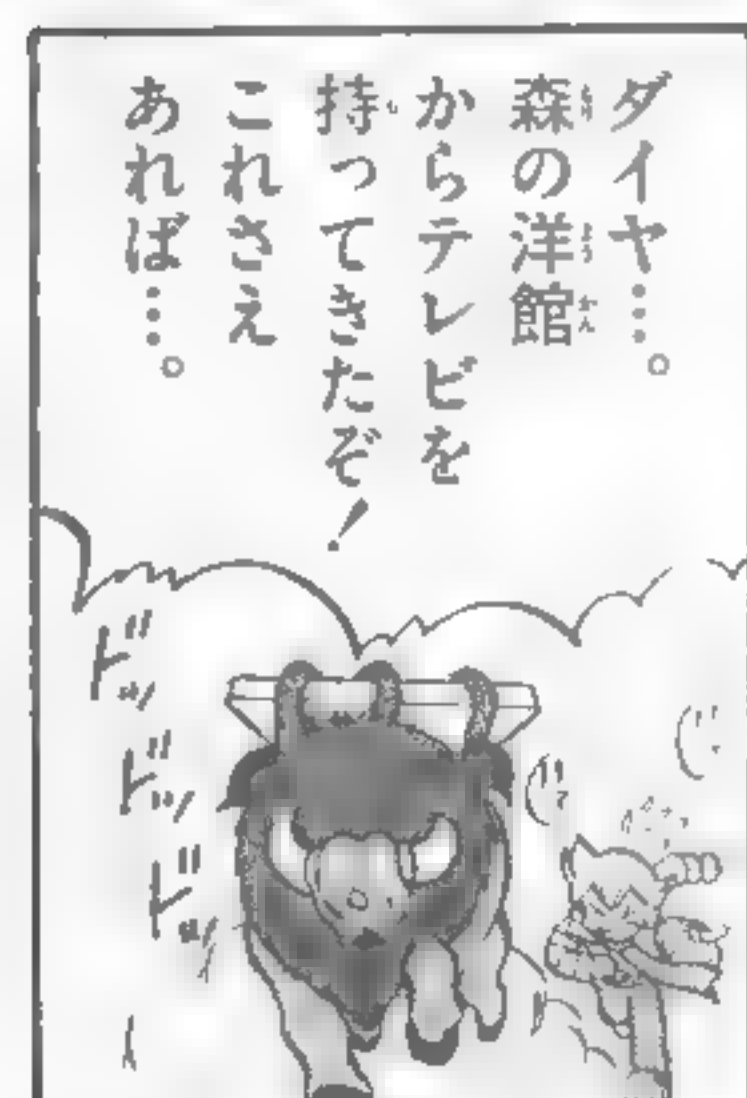 ダイヤ…。
森の洋館
からテレビを
持ってきたぞ!
これさえ
あれば…。
ドドッ
ドドッ
ドドッ